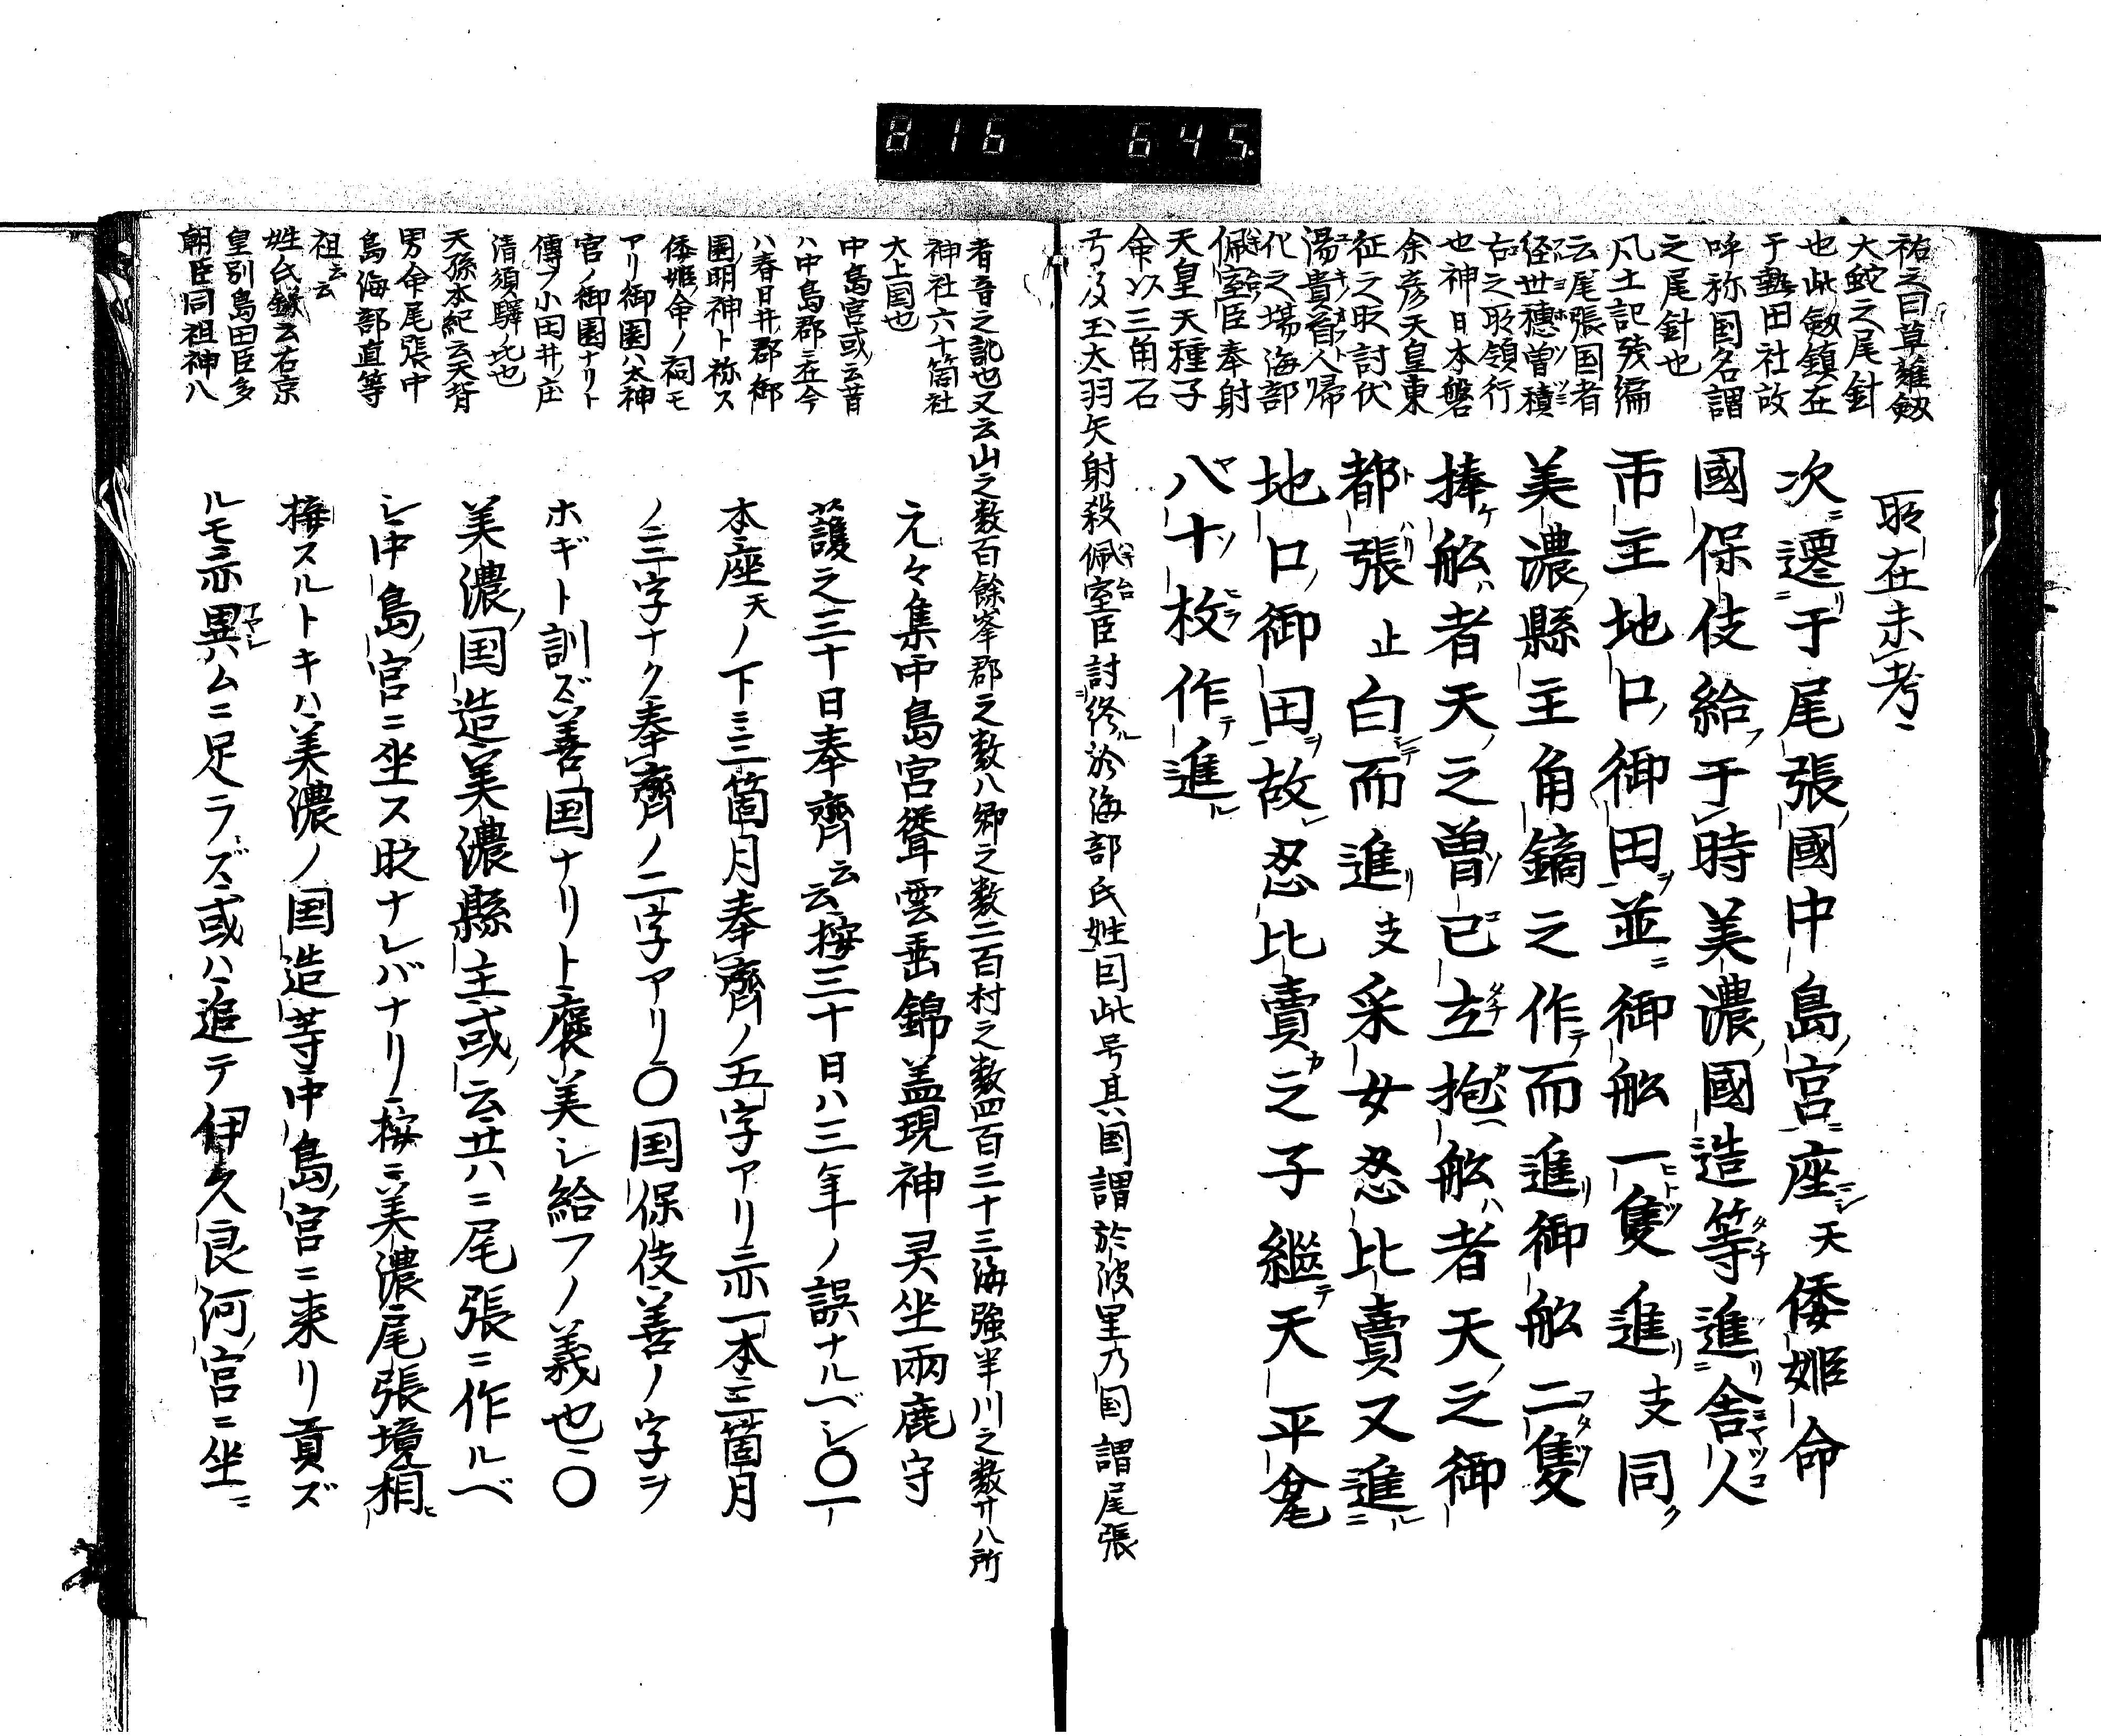 816 645
祐之曰草薙剱
大蛇之尾針
也此剱鎮在
于熱田社故
呼称国名謂
之尾針也
風土記残編
云尾張国者
径世穂曽積
古之所領行
也神日本磐
余彦天皇東
征之時討伏
湯貴首人帰
化之場海部
佩室臣奉射
天皇天種子
命以三角石
弓及玉太羽矢射殺佩室臣討終於海部氏姓因此号其国謂於波里乃国謂尾張
所在未考
次遷于尾張國中島宮座天倭姫命
國保伎給于時美濃國造等進舎人
市主地口御田並御舩一隻進支同
美濃縣主角鏑之作而進御舩二隻
捧舩者天之曽己立抱舩者天之御
都張止白而進支采女忍比賣又進
地口御田故忍比賣之子継天平瓮
八十枚作進
者音之訛也又云山之数百餘峯郡之数八郷之数二百村之数四百三十三海強半川之数廿八所
神社六十箇社
大上国也
中島宮或云昔
ハ中島郡ニ在今
ハ春日井郡御
園明神ト称ス
倭姫命ノ祠モ
アリ御園ハ太神
宮ノ御園ナリト
傳フ小田井庄
清須驛ノ北也
天孫本紀云天背
男命尾張中
島海部直等
祖云云
姓氏録云右京
皇別島田臣多
朝臣同祖神八
元々集中島宮聳雲垂錦盖現神灵坐兩鹿守
護之三十日奉齊云云按三十日ハ三年ノ誤ナルベシ〇一
本座天ノ下ニ三箇月奉齊ノ五字アリ亦一本三箇月
ノ三字ナク奉齊ノ二字アリ〇国保伎善ノ字ヲ
ホギト訓ズ善国ナリト褒美シ給フノ義也〇
美濃国造美濃縣主或云共ニ尾張ニ作ルベ
シ中島宮ニ坐ス時ナレバナリ按ニ美濃尾張境相
接スルトキハ美濃ノ国造等中島宮ニ来リ貢ズ
ルモ亦異ムニ足ラズ或ハ追テ伊久良河宮ニ坐